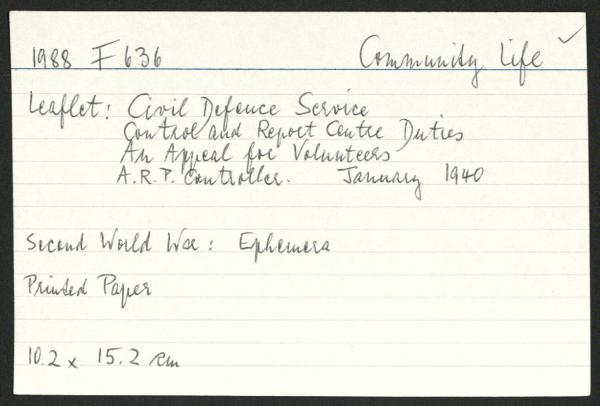 1988 F636 Community Life ✓
Leaflet: Civil Defence Service
Control and Report Centre Duties
An Appeal for Volunteers
A.R.P. Controller. January 1940
Second World War: Ephemera
Printed Paper
10.2 x 15.2 cm